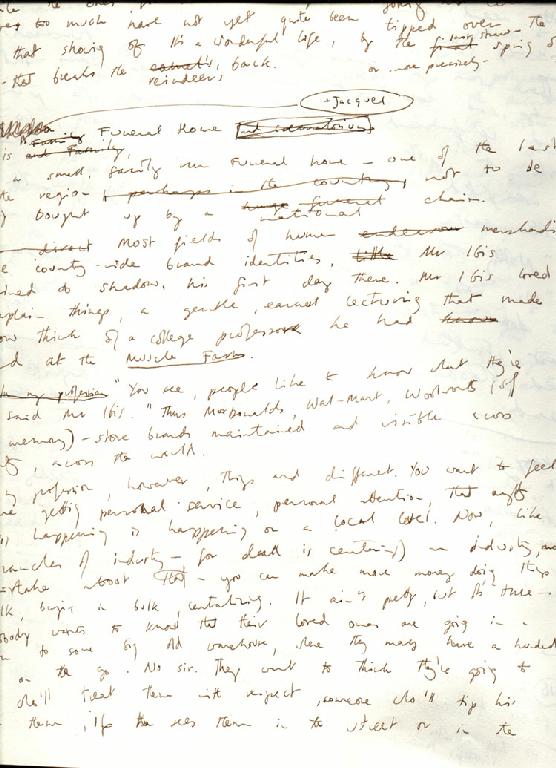 too much have not yet quite been tipped over the
that showing of It's a Wonderful Life, by the final spring
- that breaks the camel's back.
reindeer's
or more precisely-
+ Jacquel
Family Funeral Home
is and Family,
a small, family run funeral home - one of the last
region - perhaps in the country, not to be
bought up by a huge funeral chain.
national
direct Most fields of human endeavour merchandi
country-wide brand identities, little Mr Ibis
to Shadow, his first day there. Mr Ibis loved
explain things, a gentle, earnest lecturing that made
think of a college professor he had known
at the Muscle Farm.
my profession "You see, people like to know what they're
said Mr Ibis. "Thus McDonalds, Wal-Mart, Woolworths (of
memory) - store brands maintained and visible across
, across the world.
profession, however, things are different. You want to feel
getting personal service, personal attention, that
happening is happening on a local level. Now, like
branches of industry - (for death is certainly) an industry,
mistake about that - you can make more money doing things
bulk, buying in bulk, centralizing. It ain't pretty, but it's true -
nobody wants to know that their loved ones are going in a
to some big old warehouse, where they may have a hundred
on the go. No sir. They want to think they're going to
who'll treat them with respect, someone who'll tip his
them, if he sees them in the street or in the